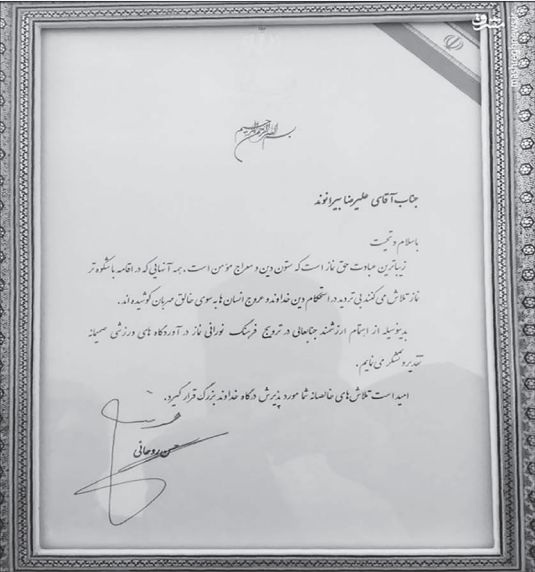 بسم الله الرحمن الرحیم
جناب آقای علیرضا بیرانوند
باسلام و تحیت
زیباترین عبادت حق نماز است که ستون دین و معراج مؤمن است. همه آنهایی که در اقامه باشکوه تر
نماز تلاش می کنند بی تردید در استحکام دین خداوند و عروج انسان ها به سوی خالق مهربان کوشیده اند.
بدینوسیله از اهتمام ارزشمند جنابعالی در ترویج فرهنگ نورانی نماز در آوردگاه های ورزشی صمیمانه
تقدیر و تشکر می نمایم.
امید است تلاش های خالصانه شما مورد پذیرش درگاه خداوند بزرگ قرار گیرد.
حسن روحانی
مشرق
mashreghnews.ir